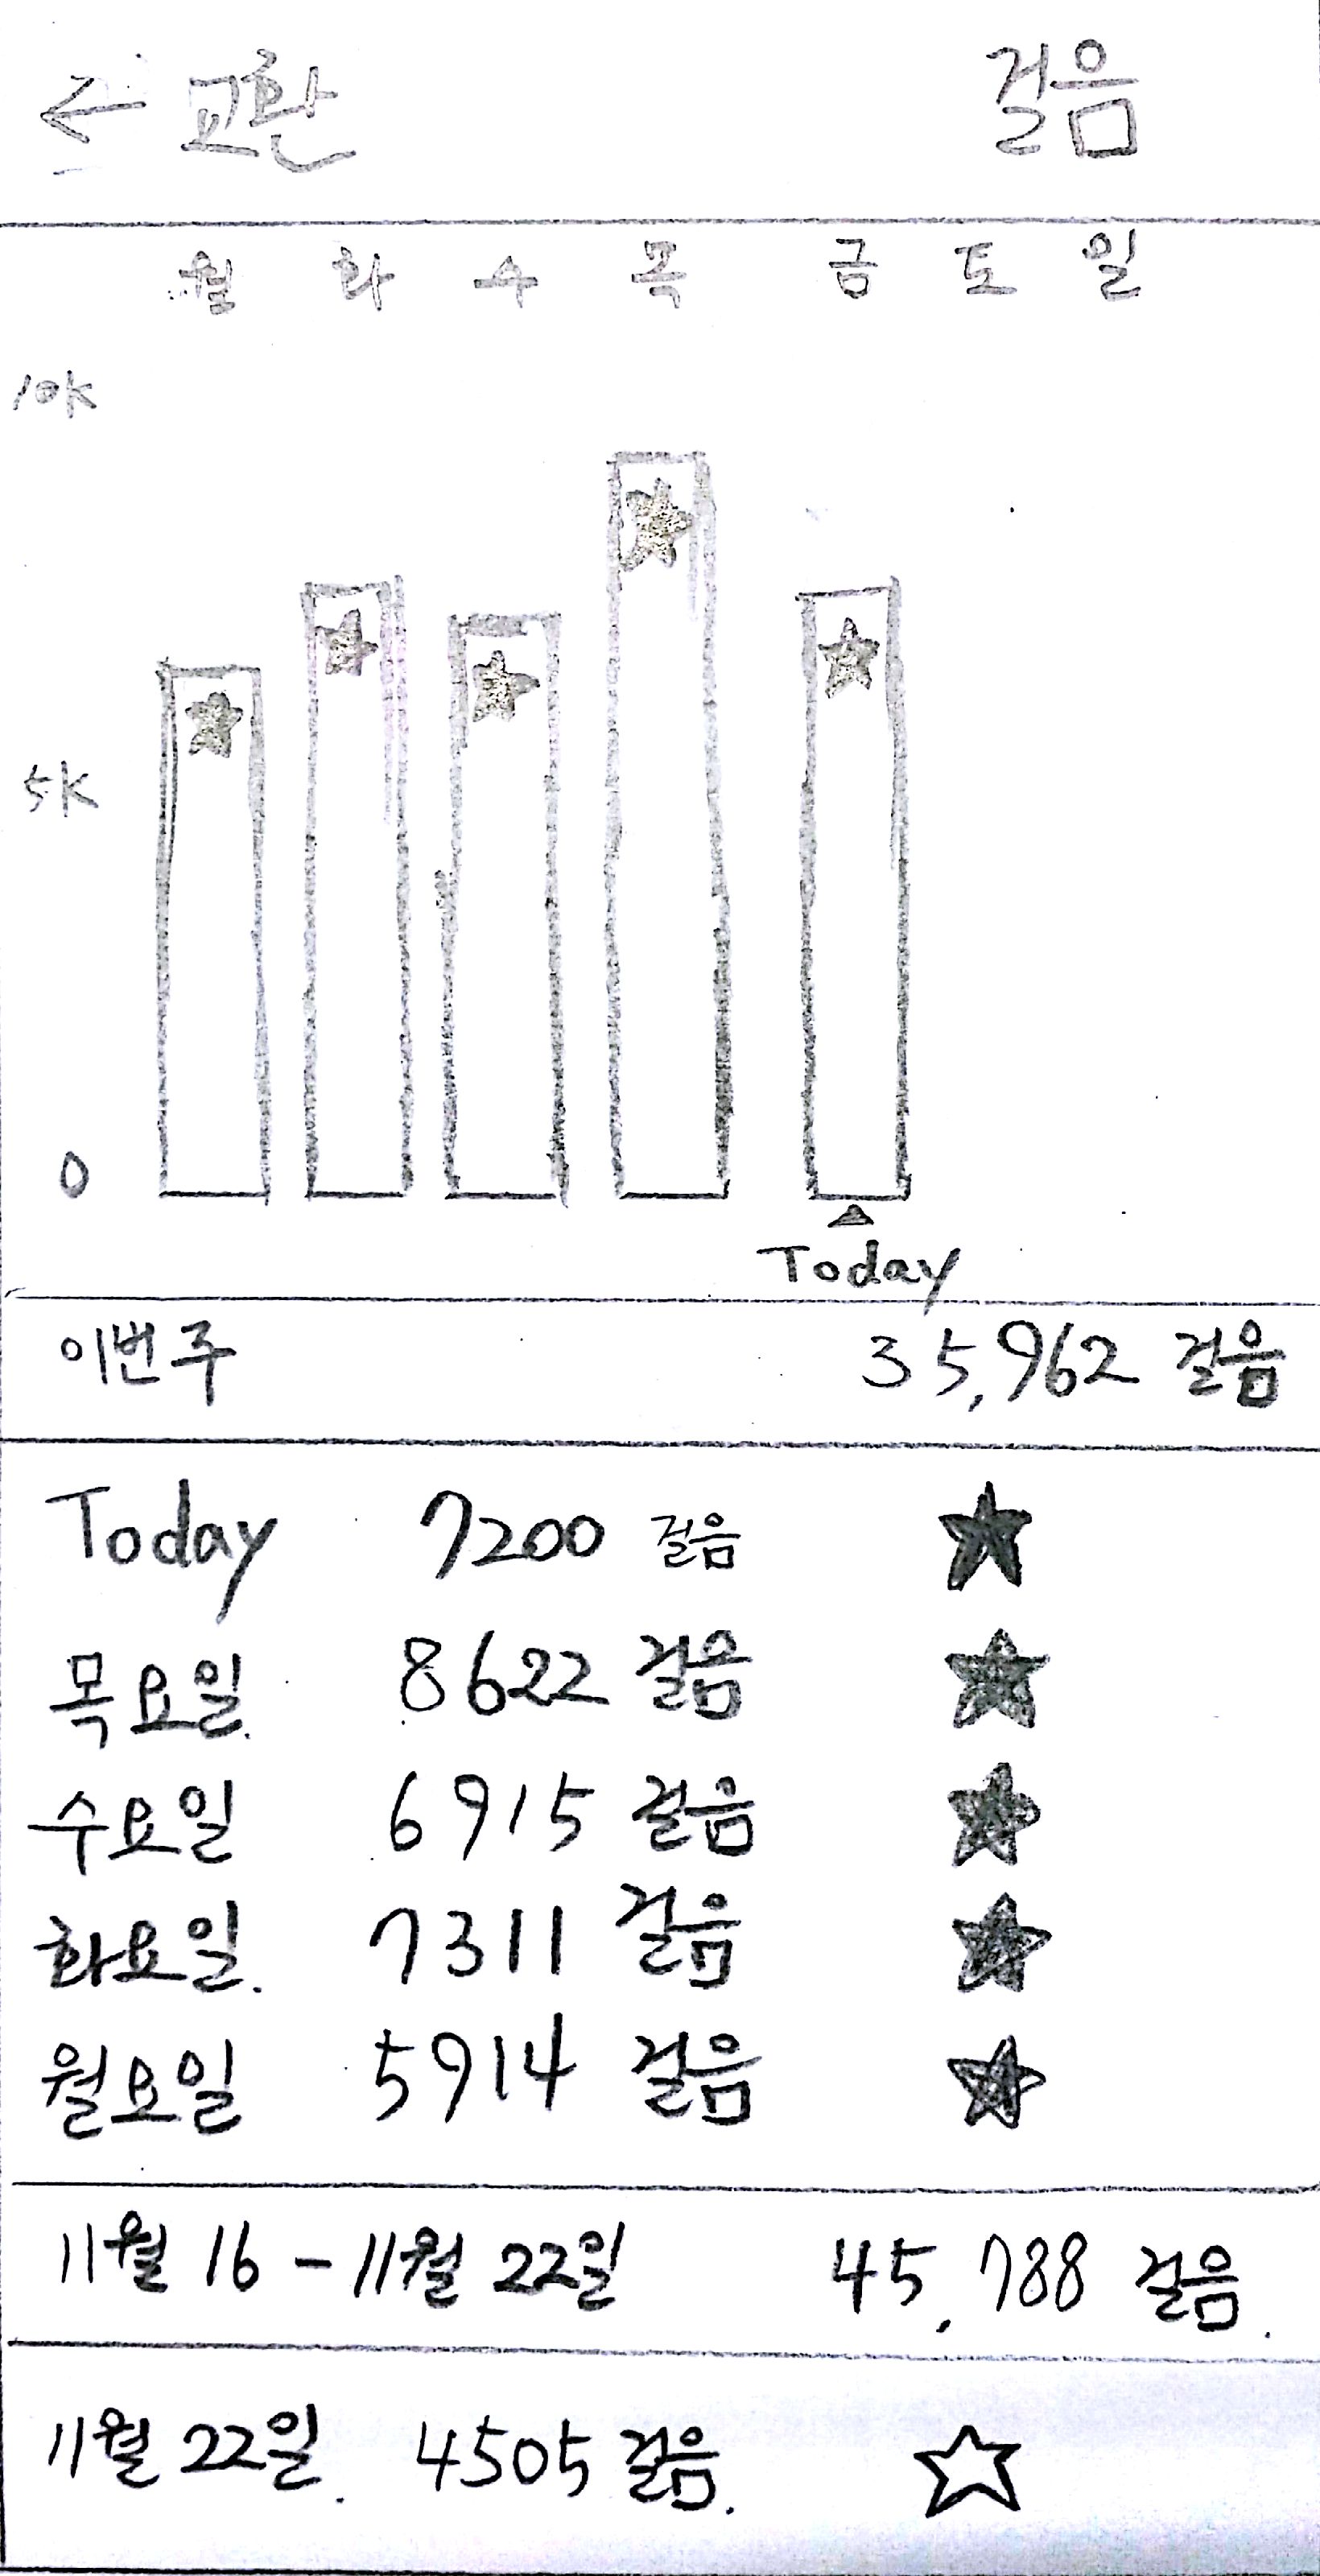 ← 교환 걸음
월 화 수 목 금 토 일
10K
5K
0
Today
이번주 35,962 걸음
Today 7200 걸음
목요일. 8622 걸음
수요일 6915 걸음
화요일. 7311 걸음
월요일 5914 걸음
11월 16 - 11월 22일 45,788 걸음.
11월 22일. 4505 걸음.